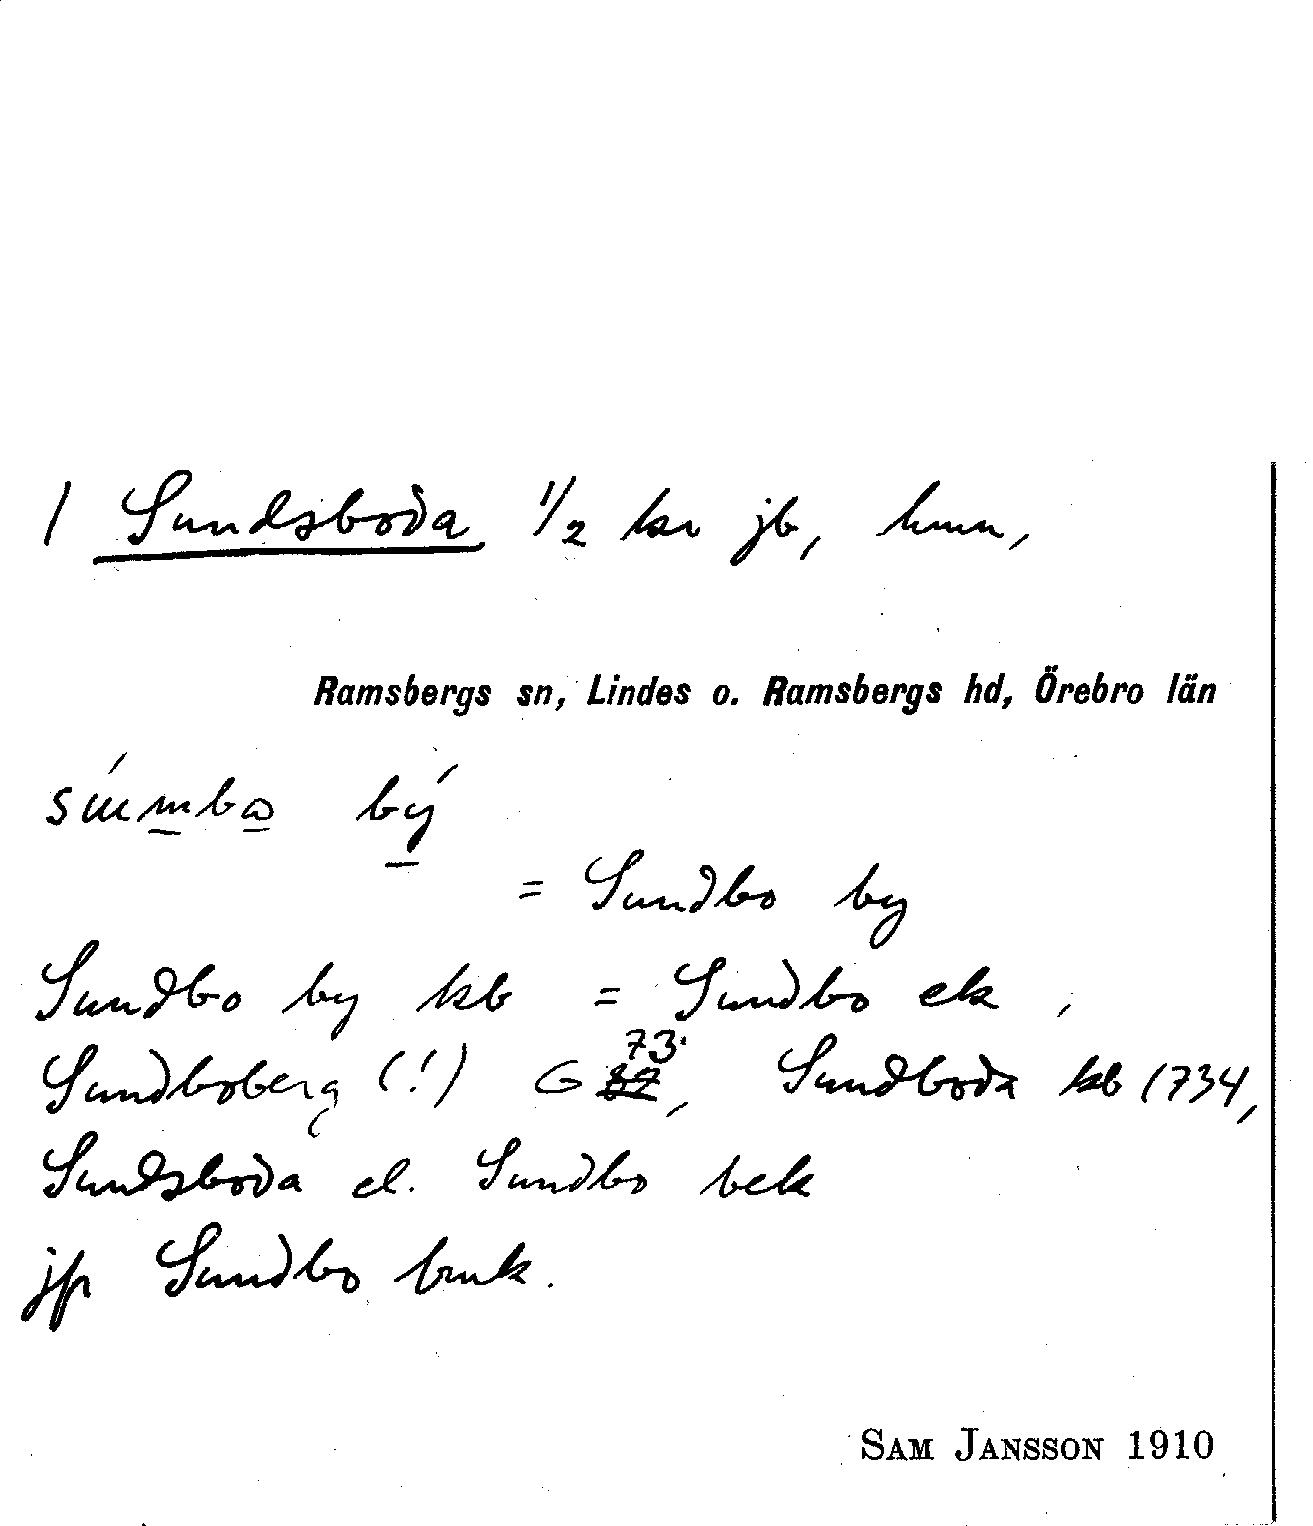 1 Sundsboda 1/2 kr jb, hmn,
Ramsbergs sn, Lindes o. Ramsbergs hd, Örebro län
by
= Sundbo by
Sundbo by kb = Sundbo ek,
Sundboberg (!) G 73, Sundboda kb 1734,
Sundsboda el. Sundbo bek
jfr Sundbo bruk.
SAM JANSSON 1910